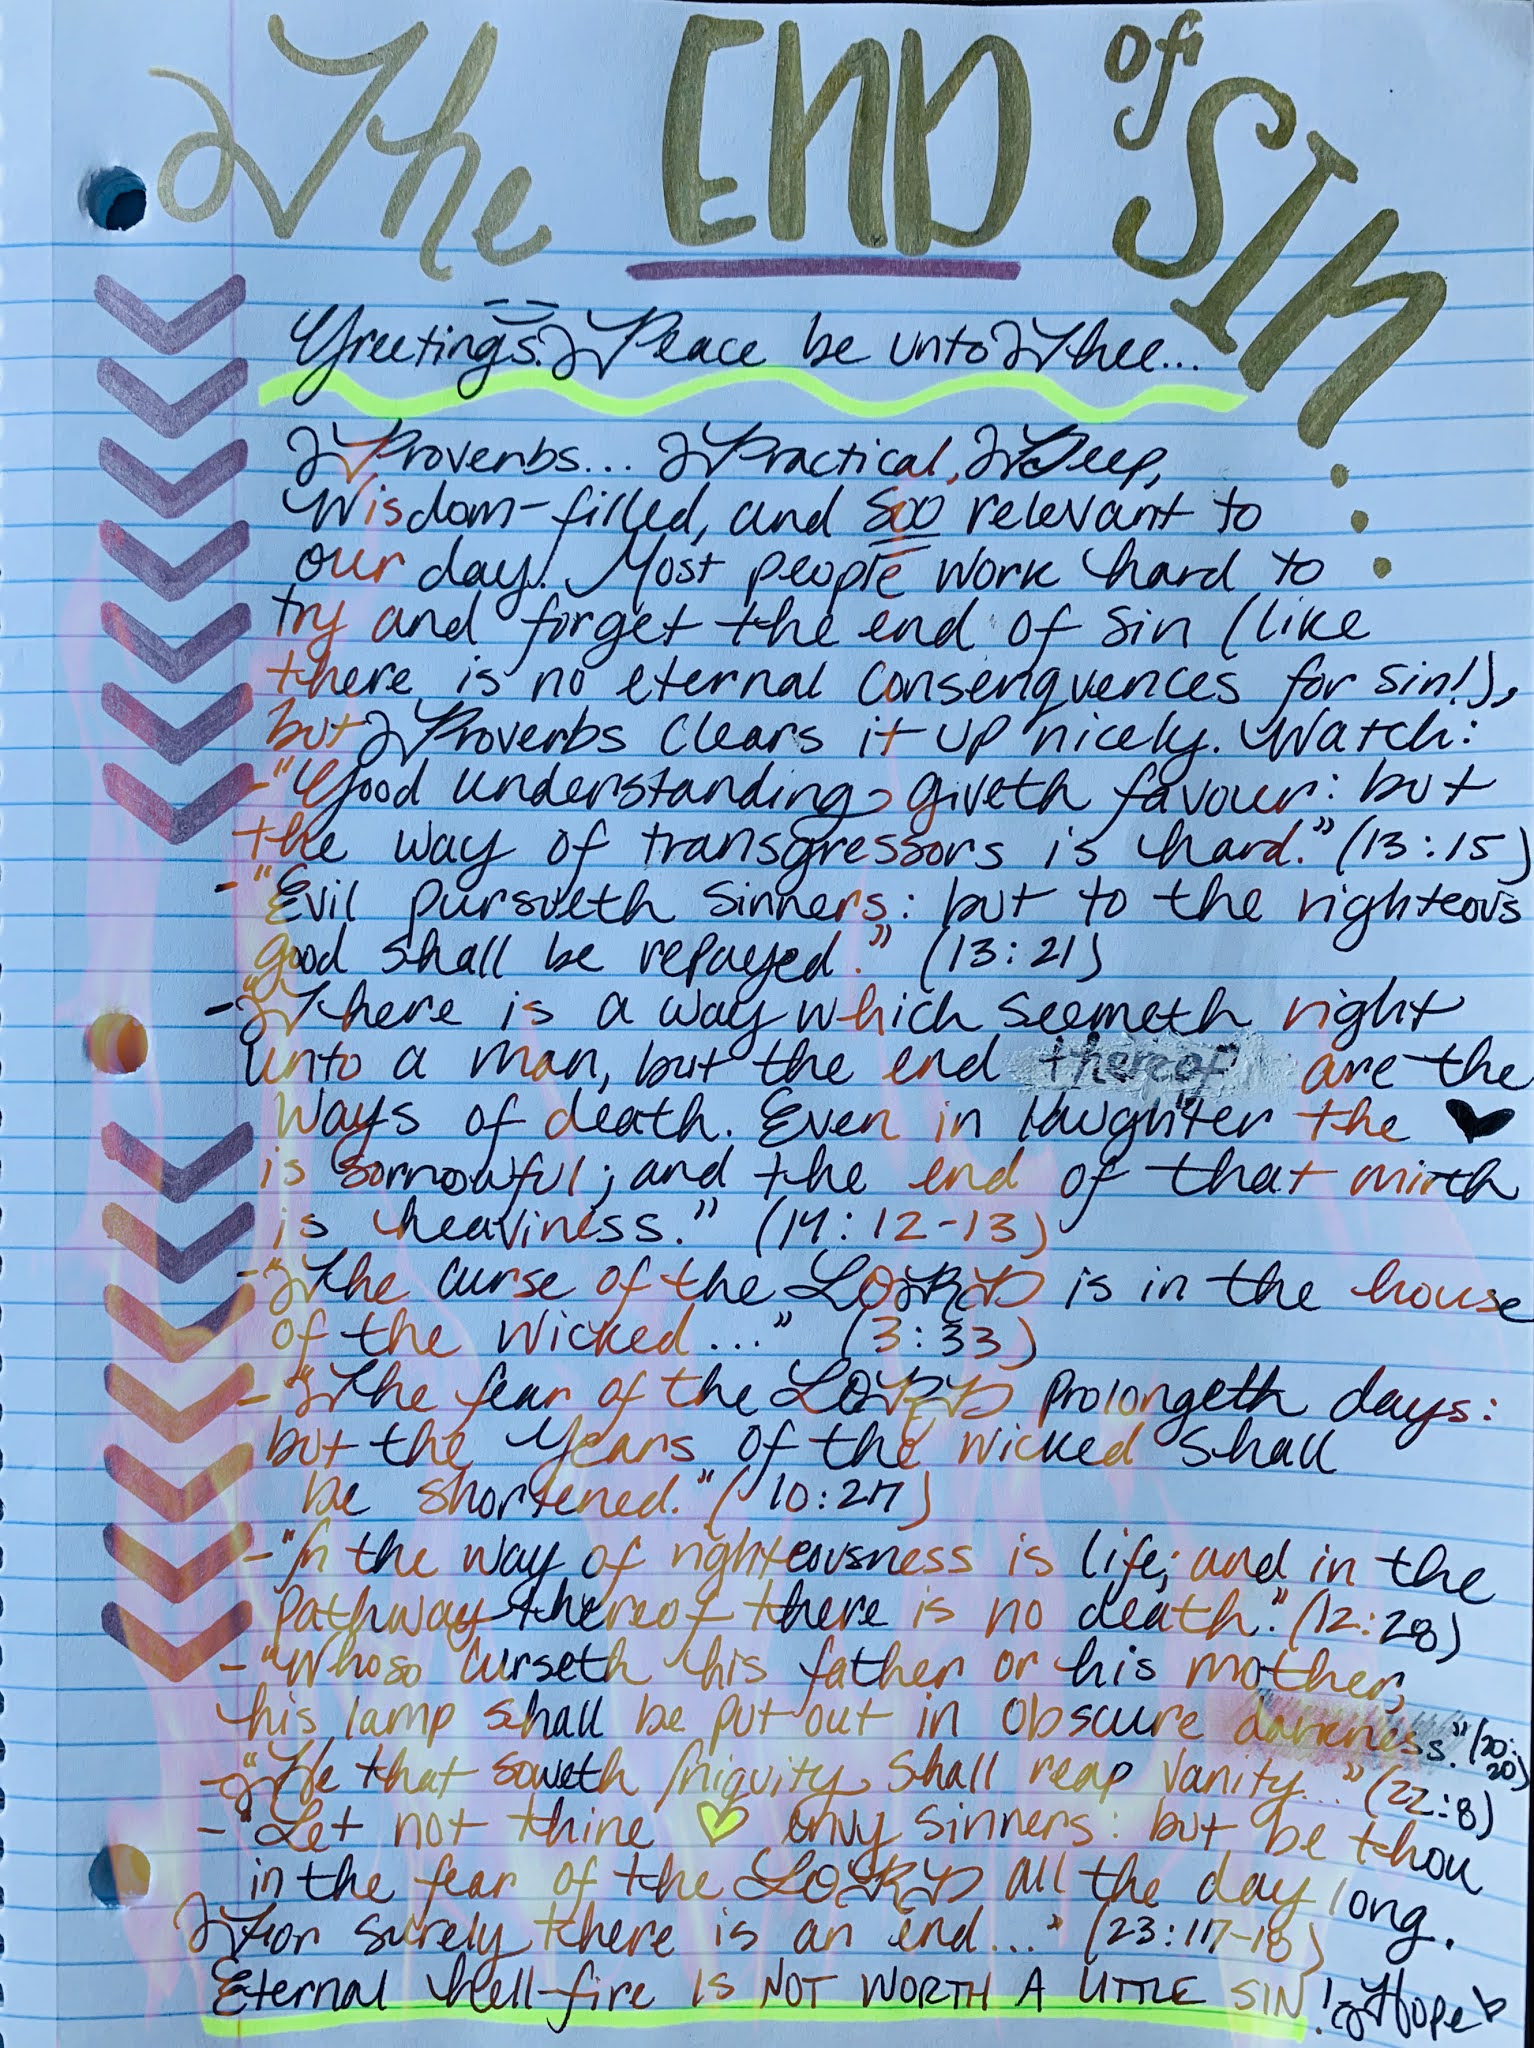 The END of SIN...
Greetings. Peace be unto Thee...
Proverbs... Practical, Deep,
Wisdom-filled, and SOO relevant to
our day! Most people work hard to
try and forget the end of sin (like
there is no eternal consenquences for sin!),
but Proverbs clears it up nicely. Watch:
-"Good understanding giveth favour: but
the way of transgressors is hard." (13:15)
-"Evil pursueth sinners: but to the righteous
good shall be repayed." (13:21)
-"There is a way which seemeth right
unto a man, but the end thereof are the
ways of death. Even in laughter the ♥
is sorrowful; and the end of that mirth
is heaviness." (14:12-13)
-"The curse of the LORD is in the house
of the wicked..." (3:33)
-"The fear of the LORD prolongeth days:
but the years of the wicked shall
be shortened." (10:27)
-"In the way of righteousness is life; and in the
pathway thereof there is no death." (12:28)
-"Whoso curseth his father or his mother,
his lamp shall be put out in obscure darkness." (20:20)
-"He that soweth iniquity shall reap vanity..." (22:8)
-"Let not thine ♥ envy sinners: but be thou
in the fear of the LORD all the day long.
For surely there is an end..." (23:17-18)
Eternal hell-fire IS NOT WORTH A LITTLE SIN! Hope